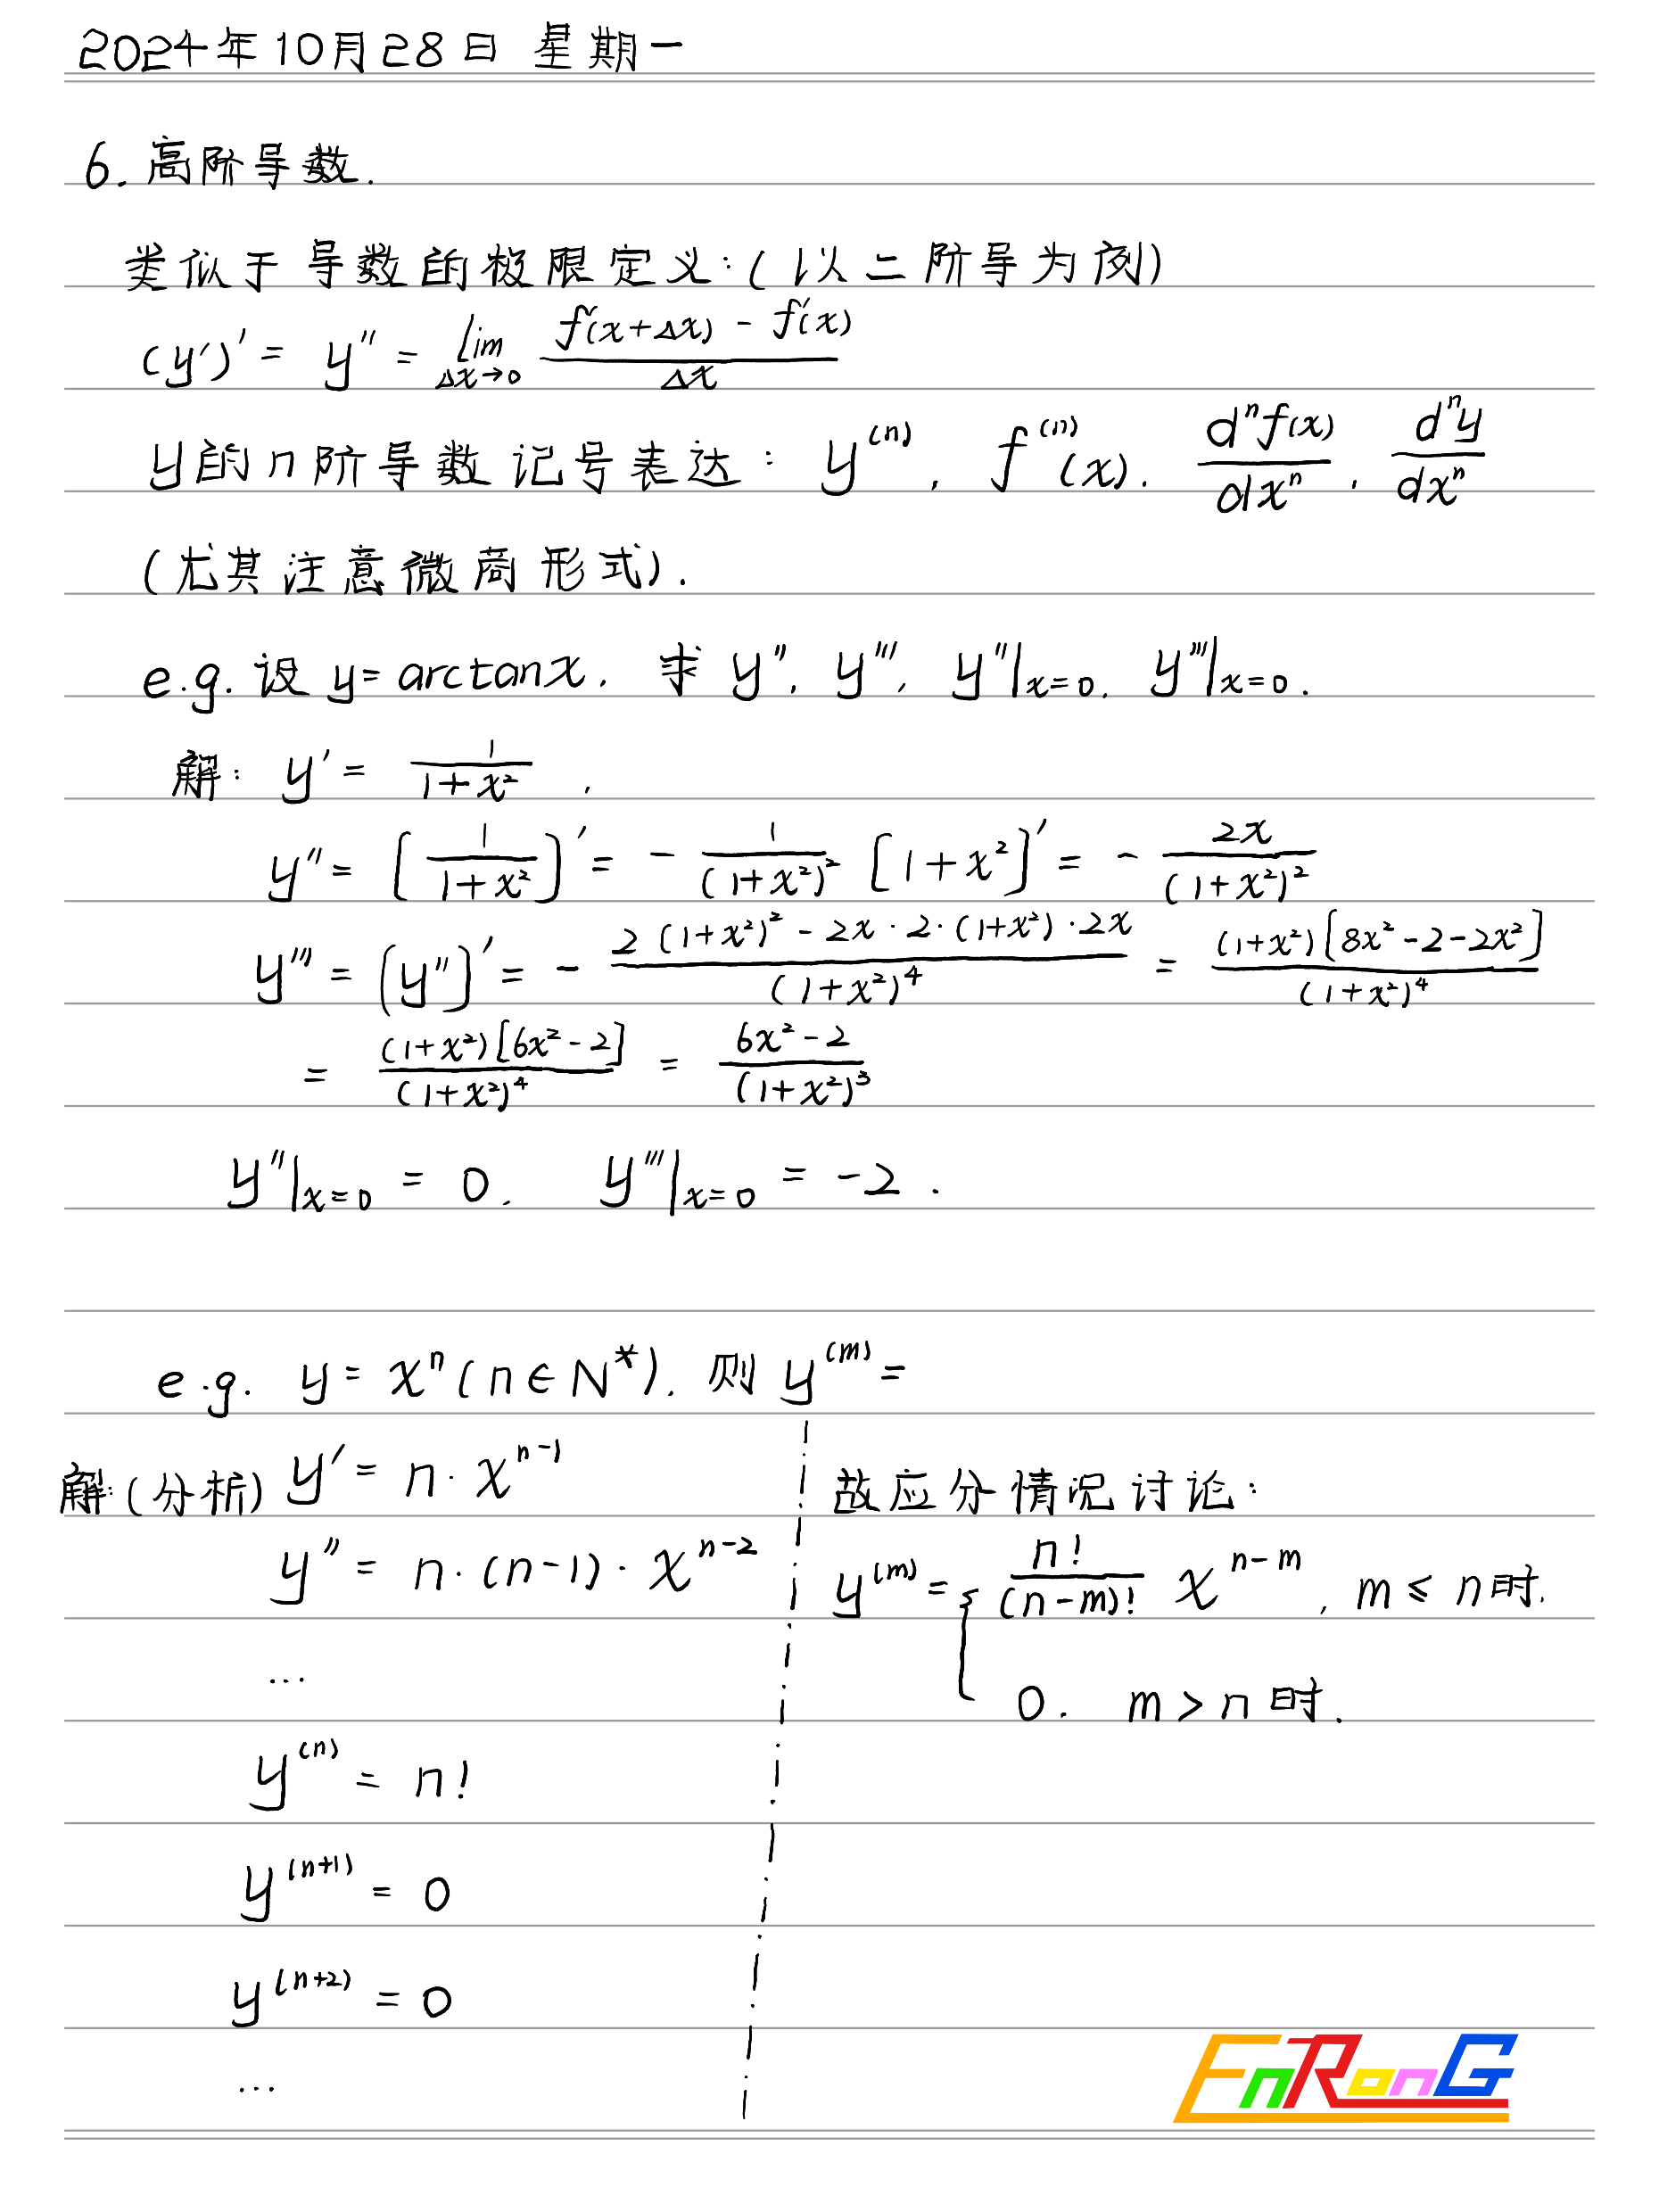 2024年10月28日 星期一
6. 高阶导数.
类似于导数的极限定义:(以二阶导为例)
(y′)′ = y″ = lim_{Δx→0} (f′(x+Δx) - f′(x))/Δx
y的n阶导数记号表达: y^(n), f^(n)(x), dⁿf(x)/dxⁿ, dⁿy/dxⁿ
(尤其注意微商形式).
e.g. 设 y = arctanx, 求 y″, y‴, y″|x=0, y‴|x=0.
解: y′ = 1/(1+x²),
y″ = [1/(1+x²)]′ = - 1/(1+x²)² [1+x²]′ = - 2x/(1+x²)²
y‴ = (y″)′ = - (2(1+x²)² - 2x·2·(1+x²)·2x)/(1+x²)⁴ = (1+x²)[8x²-2-2x²]/(1+x²)⁴
= (1+x²)[6x²-2]/(1+x²)⁴ = (6x²-2)/(1+x²)³
y″|x=0 = 0. y‴|x=0 = -2.
e.g. y = xⁿ (n∈N*), 则 y^(m) =
解:(分析) y′ = n·x^(n-1)
y″ = n·(n-1)·x^(n-2)
...
y^(n) = n!
y^(n+1) = 0
y^(n+2) = 0
...
故应分情况讨论:
y^(m) = { n!/(n-m)! x^(n-m), m ≤ n时.
0. m > n时.
EnRonG